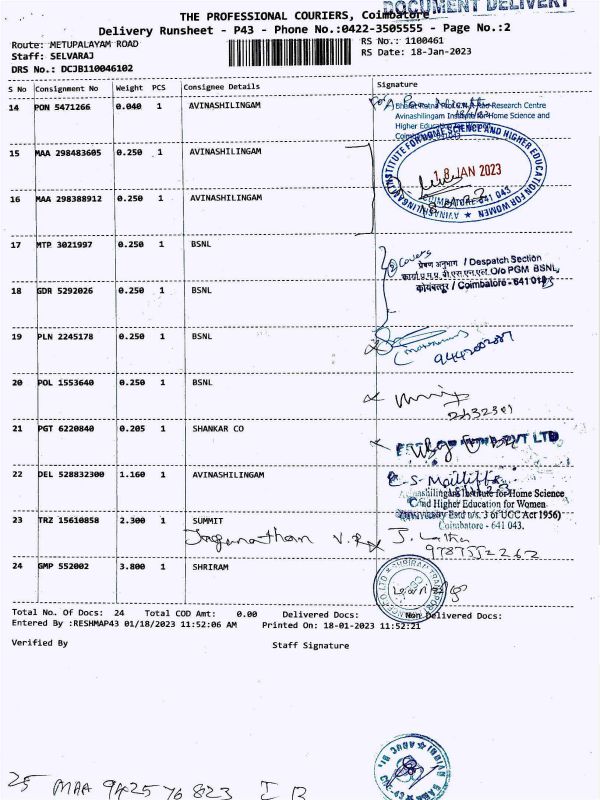 DOCUMENT DELIVERY
THE PROFESSIONAL COURIERS, Coimbatore
Delivery Runsheet - P43 - Phone No.:0422-3505555 - Page No.:2
Route: METUPALAYAM ROAD
RS No.: 1100461
Staff: SELVARAJ
RS Date: 18-Jan-2023
DRS No.: DCJB110046102
S No Consignment No Weight PCS Consignee Details Signature
14 PON 5471266 0.040 1 AVINASHILINGAM
Research Centre
Avinashilingam Institute for Home Science and
Higher Education
15 MAA 298483605 0.250 1 AVINASHILINGAM
INSTITUTE FOR HOME SCIENCE AND HIGHER EDUCATION FOR WOMEN
18 JAN 2023
COIMBATORE 641 043
16 MAA 298388912 0.250 1 AVINASHILINGAM
17 MTP 3021997 0.250 1 BSNL
Covers
प्रेषण अनुभाग / Despatch Section
O/o PGM BSNL,
कोयंबत्तूर / Coimbatore - 641 0
18 GDR 5292026 0.250 1 BSNL
19 PLN 2245178 0.250 1 BSNL
20 POL 1553640 0.250 1 BSNL
21 PGT 6220840 0.205 1 SHANKAR CO
PVT LTD
22 DEL 528832300 1.160 1 AVINASHILINGAM
Avinashilingam Institute for Home Science
and Higher Education for Women
(University Estd u/s. 3 of UGC Act 1956)
Coimbatore - 641 043.
23 TRZ 15610858 2.300 1 SUMMIT
Jaganathan V.R J. Latha
24 GMP 552002 3.800 1 SHRIRAM
Total No. Of Docs: 24 Total COD Amt: 0.00 Delivered Docs: Non Delivered Docs:
Entered By :RESHMAP43 01/18/2023 11:52:06 AM Printed On: 18-01-2023 11:52:21
Verified By Staff Signature
25 MAA 942576823 I B